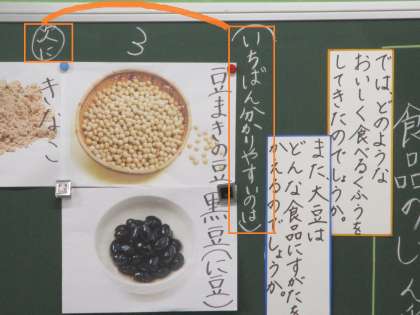 食品のひ
では、どのような
おいしく食べるくふうを
してきたのでしょうか。
また、大豆は
どんな食品にすがたを
かえるのでしょうか。
(いちばん分かりやすいのは)
3
豆まきの豆
黒豆(に豆)
次に
きなこ